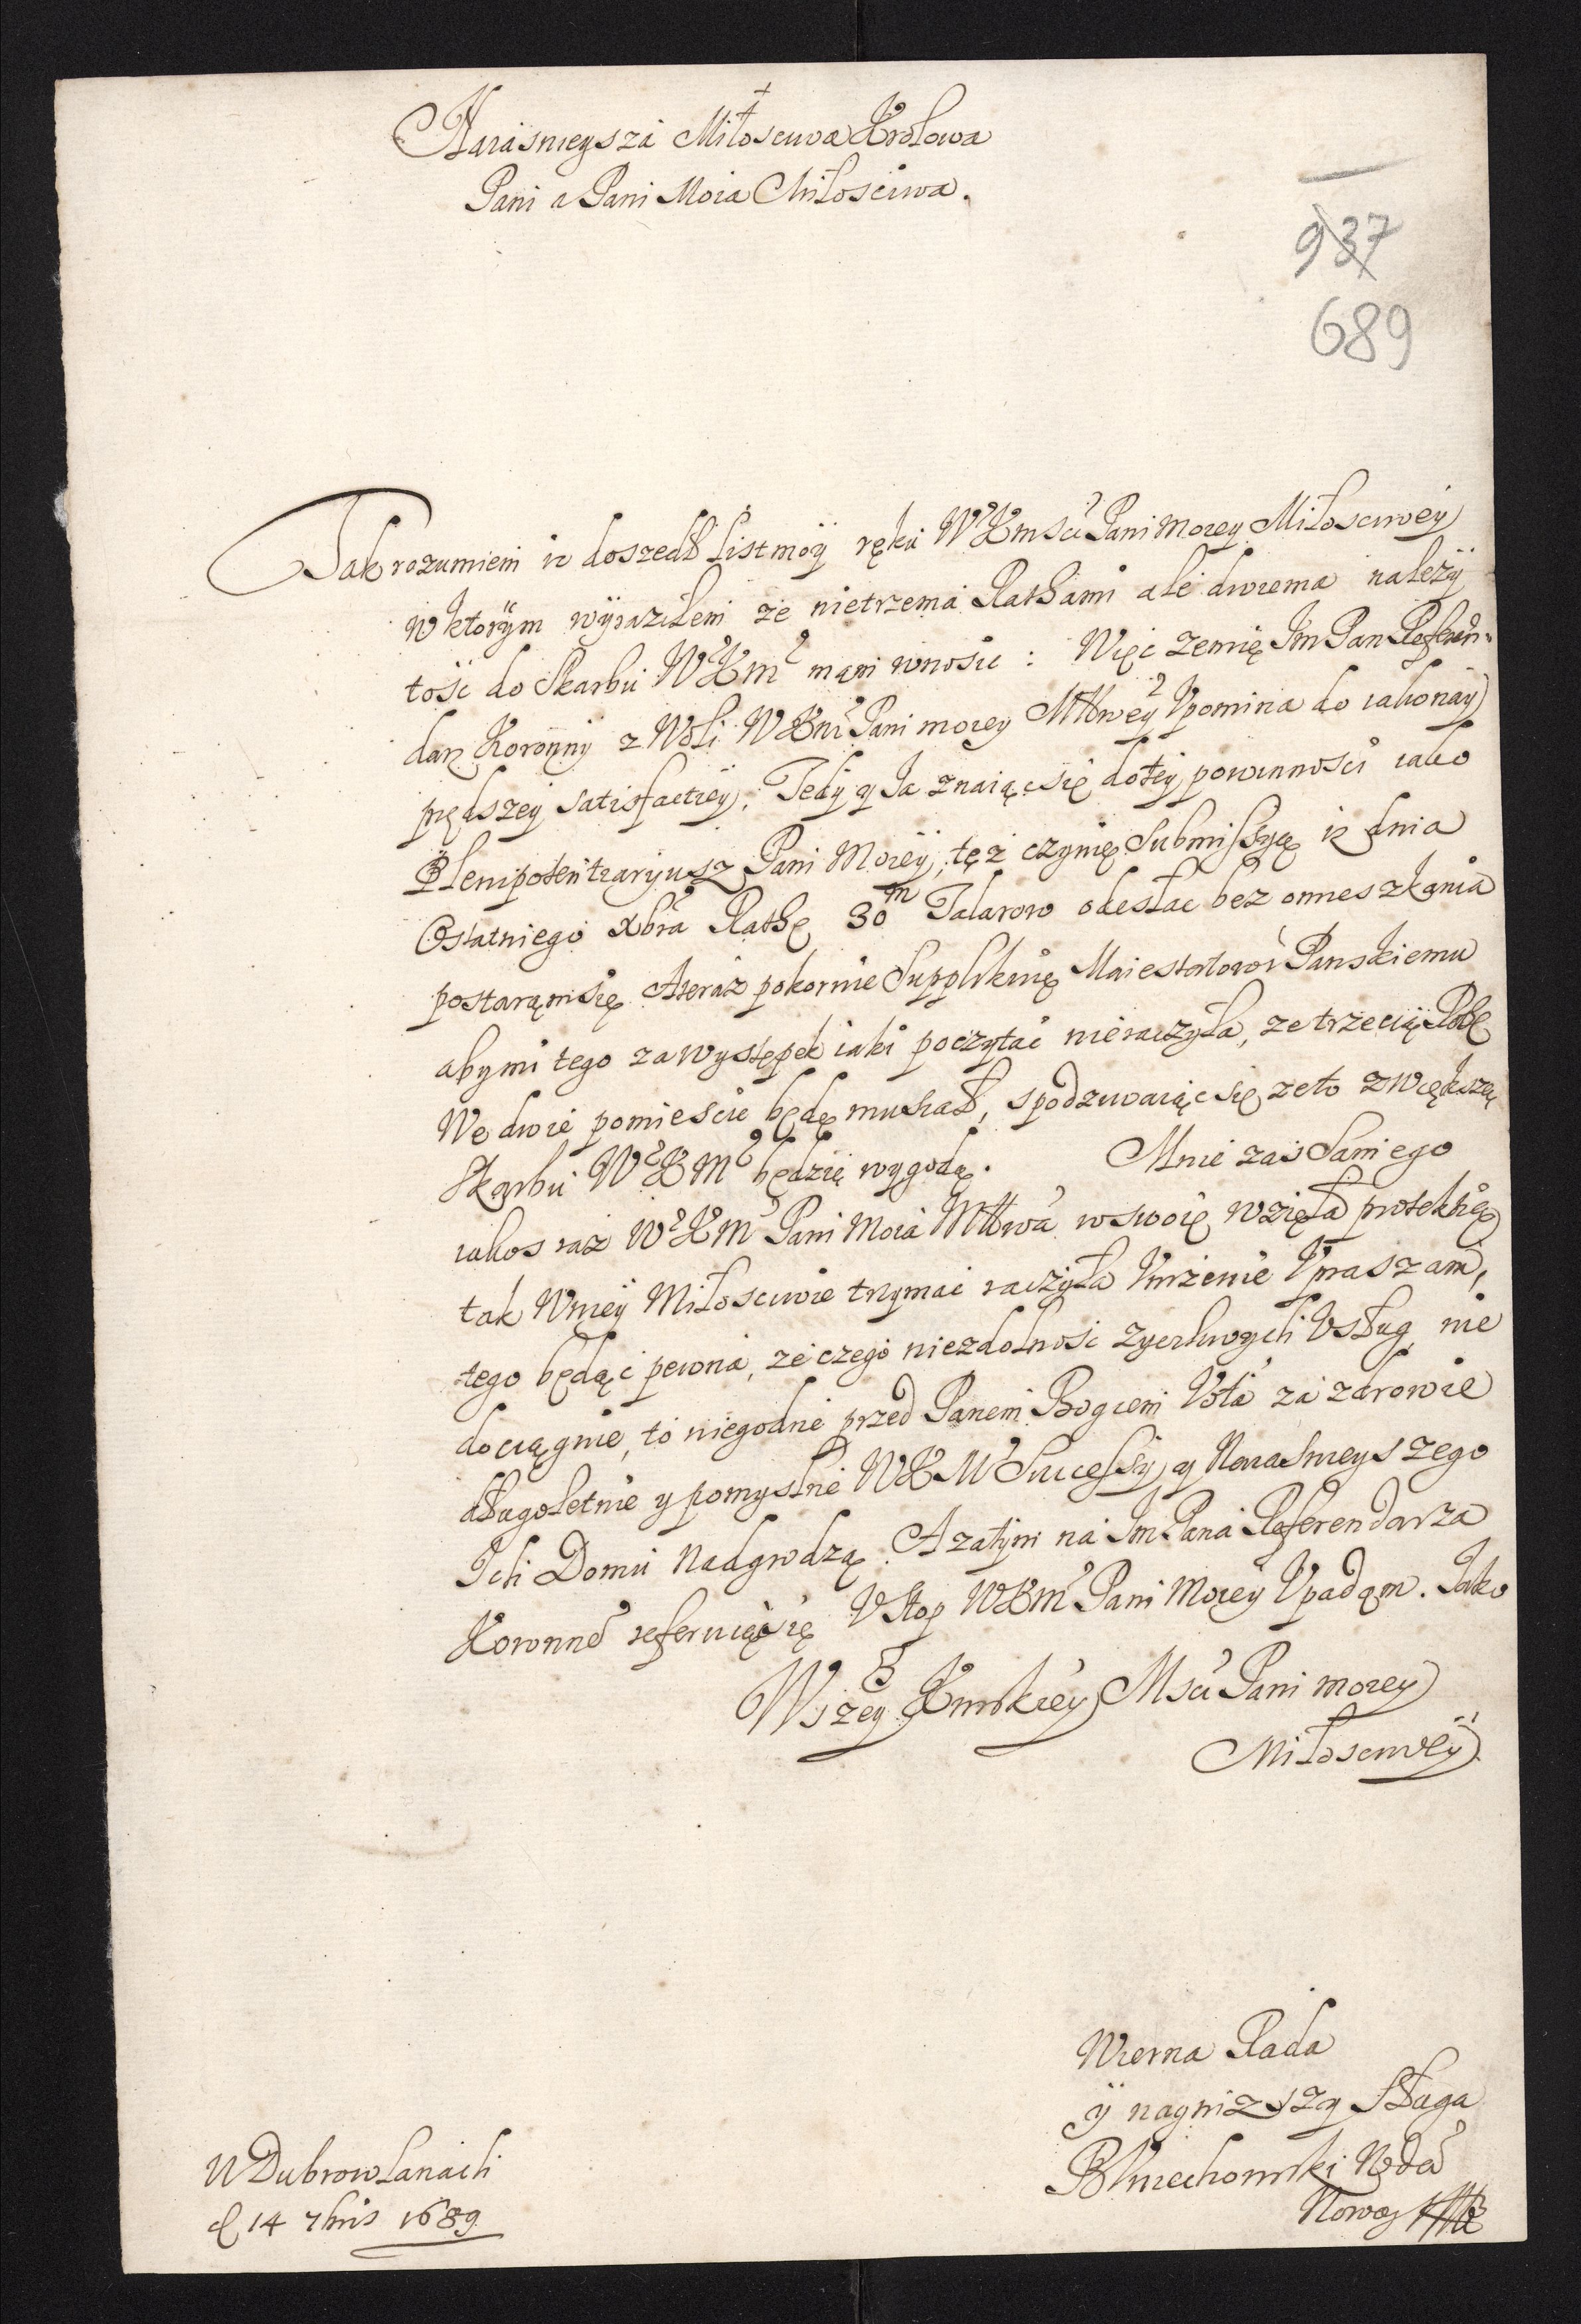 +
Naiasnieysza Miłosciwa Krolowa
Pani a Pani Moia Miłosciwa.
937
689
Tak rozumiem iz doszedł list moy ręku WKmsci Pani moiey Miłosciwey
w ktorym wyraziłem że nietrzema Rathami ale dwiema należy
tośc do Skarbu WKm mąm wnosic : Więc zemię Im Pan Referen-
darz Koronny z Woli WKm Pani moiey Młłwey Vpomina do iakonay
pędszey satisfactiey. Tedy y Ia znaiąc się dotey powinnosci iako
Plenipotentiaryusz Pani Moiey, tęż czynię Submissyę iz dnia
Ostatniego Xbra Rathę 30 m Talarow odesłac bez omieszkania
postarąm się. Ateraz pokornie Supplikuię Maiestatowi Panskiemu
abymi tego za występek iaki poczytac nieraczyła, ze trzecią Robę
We dwie pomiescic będę musiał, spodziwaiąc się zeto zwiększą
Skarbu WKM będzię wygodą. Mnie zas Samego
iakos raz WKM Pani Moia Młłwa wswoię wzięła protekhię
tak Wniey Miłosciwie trzymac raczyła Vnizenie Vpraszam,
tego będąc pewna, ze czego niezdolnosc zyczliwych Vsług nie
dociągnie, to niegodne przed Panem Bogiem Vota za zdrowie
długoletnie y pomyslne WKM Sucessy y Naiasnieyszego
Ich Domu nadgrodzą. A zatym na Im Pana Referendarza
Koronne referuiąc się Vstop WKM Pani Moiey Vpadąm. Iako
Wszey Krnskiey Msci Pani moiey
Miłosciwey
Wierna Rada
y nayniższy Sługa
W Dubrowlanach
d 14 7bris 1689